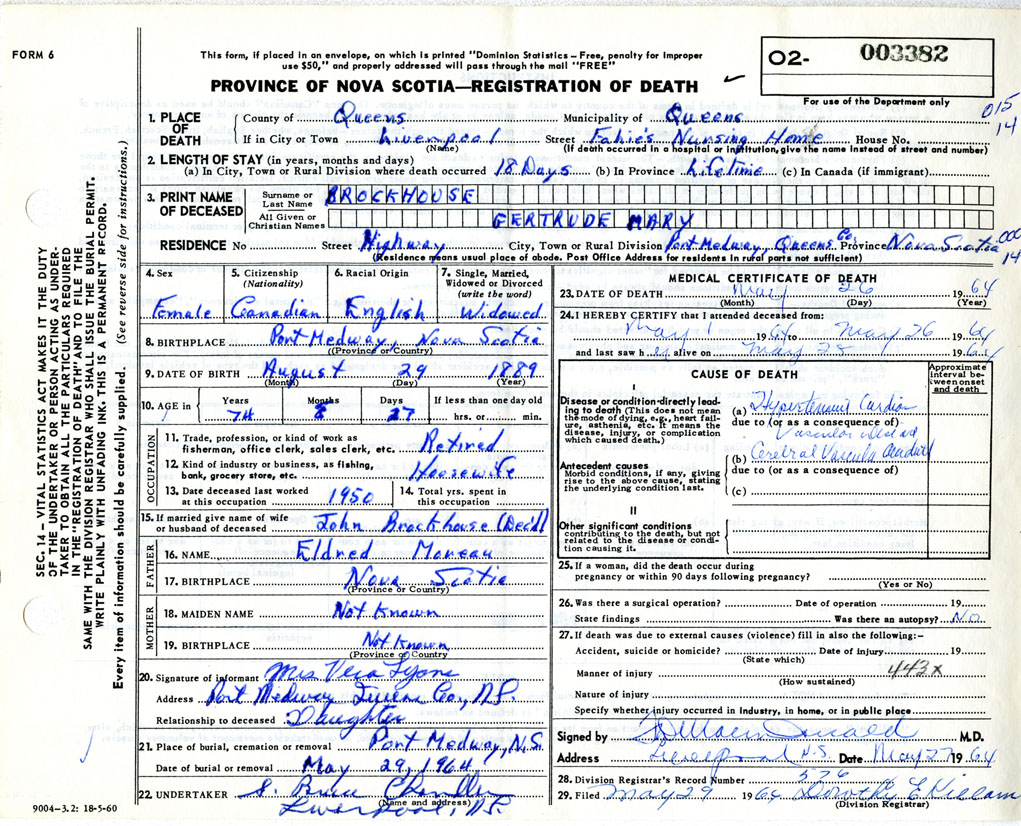 FORM 6
This form, if placed in an envelope, on which is printed "Dominion Statistics – Free, penalty for improper
use $50," and properly addressed will pass through the mail "FREE"
PROVINCE OF NOVA SCOTIA—REGISTRATION OF DEATH
O2- 003382
For use of the Department only
015
14
1. PLACE OF DEATH
County of Queens Municipality of Queens
If in City or Town Liverpool Street Fahie's Nursing Home House No.
(Name) (If death occured in a hospital or institution, give the name instead of street and number)
2. LENGTH OF STAY (in years, months and days)
(a) In City, Town or Rural Division where death occurred 18 Days (b) In Province Lifetime (c) In Canada (if immigrant)
3. PRINT NAME OF DECEASED
Surname or Last Name BROCKHOUSE
All Given or Christian Names GERTRUDE MARY
RESIDENCE No Street Highway City, Town or Rural Division Port Medway, Queens Co Province Nova Scotia
000
14
(Residence means usual place of abode. Post Office Address for residents in rural parts not sufficient)
4. Sex Female
5. Citizenship (Nationality) Canadian
6. Racial Origin English
7. Single, Married, Widowed or Divorced (write the word) Widowed
8. BIRTHPLACE Port Medway, Nova Scotia
(Province or Country)
9. DATE OF BIRTH August 29 1889
(Month) (Day) (Year)
10. AGE in Years Months Days If less than one day old
74 8 27 hrs. or min.
OCCUPATION
11. Trade, profession, or kind of work as
fisherman, office clerk, sales clerk, etc. Retired
12. Kind of industry or business, as fishing,
bank, grocery store, etc. Housewife
13. Date deceased last worked
at this occupation 1950
14. Total yrs. spent in
this occupation
15. If married give name of wife
or husband of deceased John Brockhouse (Dec'd)
FATHER
16. NAME Eldred
17. BIRTHPLACE Nova Scotia
(Province or Country)
MOTHER
18. MAIDEN NAME Not Known
19. BIRTHPLACE Not Known
(Province or Country
20. Signature of informant Mrs Vera
Address Port Medway Queens Co., N.S.
Relationship to deceased Daughter
21. Place of burial, cremation or removal Port Medway, N.S.
Date of burial or removal May 29, 1964
22. UNDERTAKER Chandler
(Name and address)
Liverpool, N.S.
MEDICAL CERTIFICATE OF DEATH
23. DATE OF DEATH May 26 1964
(Month) (Day) (Year)
24. I HEREBY CERTIFY that I attended deceased from:
May 1 1964 to May 26 1964
and last saw her alive on May 25 1964
CAUSE OF DEATH
Approximate interval between onset and death
I
Disease or condition directly leading to death (This does not mean
the mode of dying, e.g., heart failure, asthenia, etc. It means the
disease, injury, or complication
which caused death.)
(a) Hypertensive Cardio
due to (or as a consequence of)
Vascular disease
(b) Cerebral Vascular Accident
due to (or as a consequence of)
(c)
Antecedent causes
Morbid conditions, if any, giving
rise to the above cause, stating
the underlying condition last.
II
Other significant conditions
contributing to the death, but not
related to the disease or condition causing it.
25. If a woman, did the death occur during
pregnancy or within 90 days following pregnancy?
(Yes or No)
26. Was there a surgical operation? Date of operation 19
State findings Was there an autopsy? No
27. If death was due to external causes (violence) fill in also the following:–
Accident, suicide or homicide? Date of injury 19
(State which)
Manner of injury 443X
(How sustained)
Nature of injury
Specify whether injury occurred in Industry, in home, or in public place
Signed by M.D.
Address Liverpool N.S. Date May 27 1964
28. Division Registrar's Record Number 576
29. Filed May 29 1964 Dorothy E Killam
(Division Registrar)
SEC. 14 – VITAL STATISTICS ACT MAKES IT THE DUTY
OF THE UNDERTAKER OR PERSON ACTING AS UNDERTAKER TO OBTAIN ALL THE PARTICULARS REQUIRED
IN THE "REGISTRATION OF DEATH" AND TO FILE THE
SAME WITH THE DIVISION REGISTRAR WHO SHALL ISSUE THE BURIAL PERMIT.
WRITE PLAINLY WITH UNFADING INK. THIS IS A PERMANENT RECORD.
Every item of information should be carefully supplied. (See reverse side for instructions.)
9004–3.2: 18-5-60